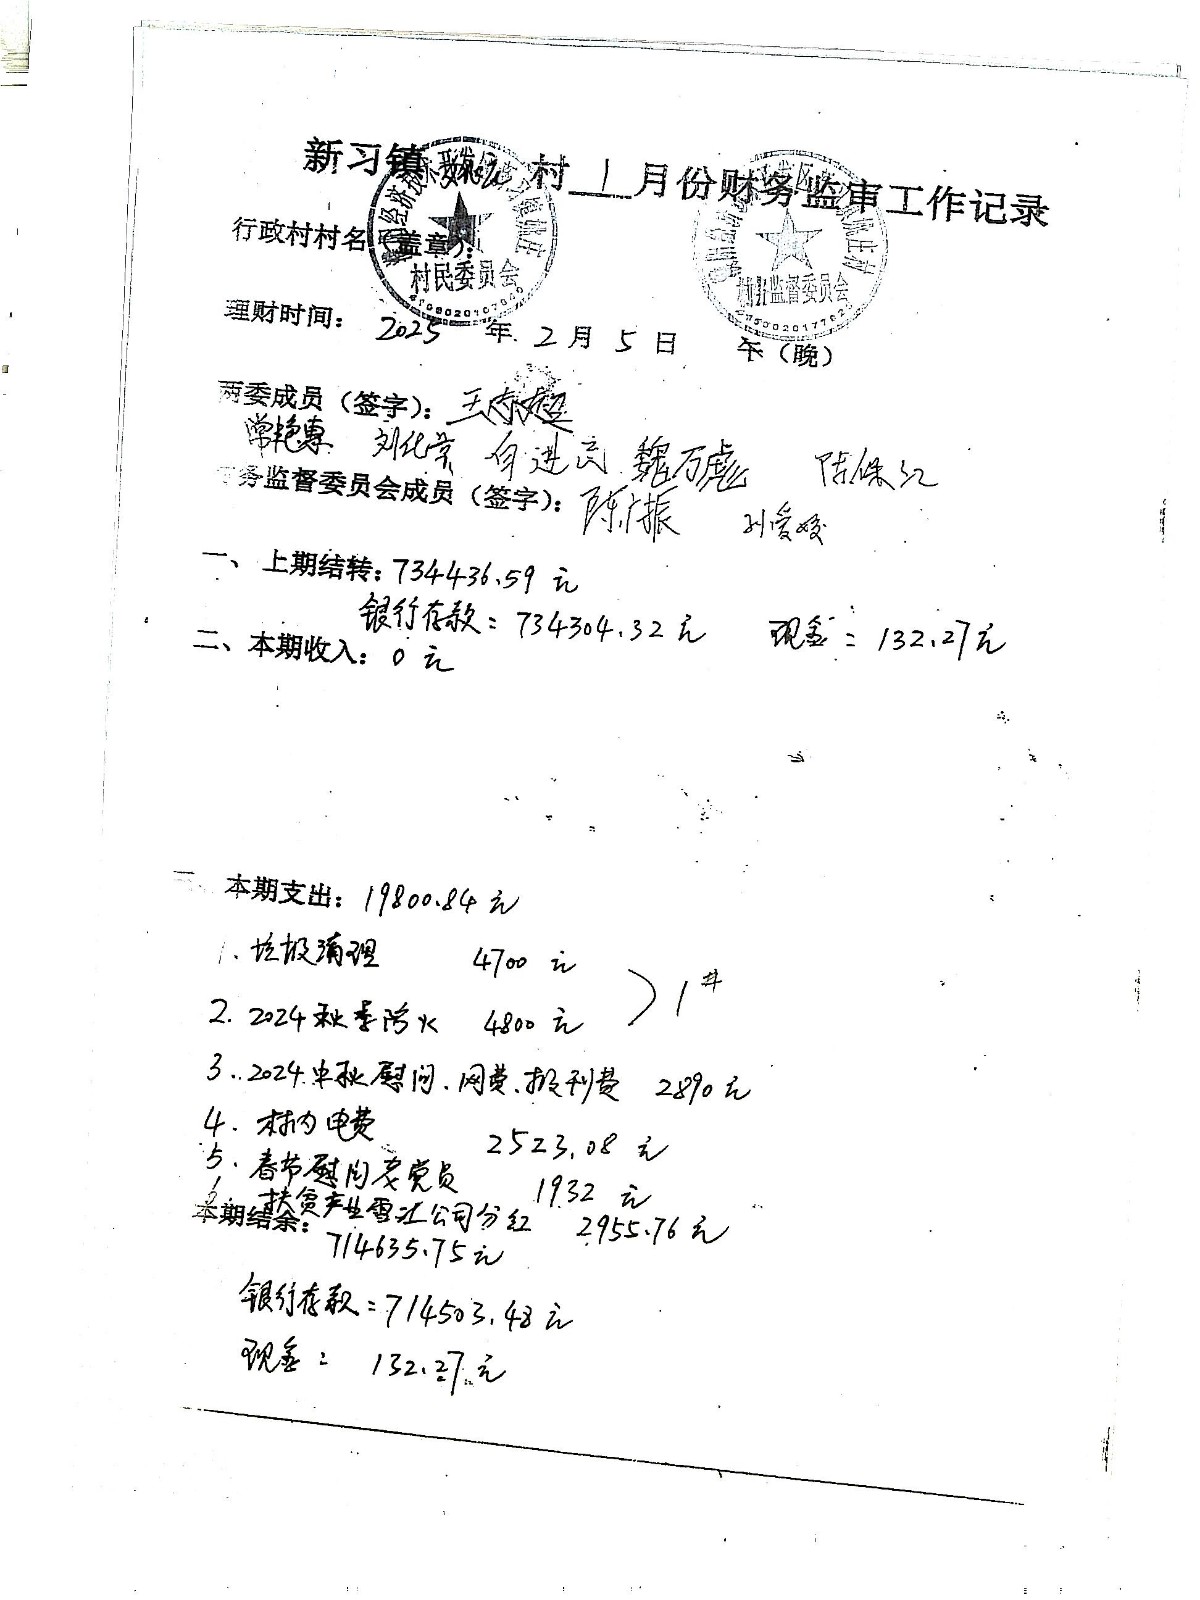 新习镇 村 1 月份财务监审工作记录
行政村村名（盖章）：
村民委员会
村务监督委员会
理财时间： 2025 年 2 月 5 日 午（晚）
两委成员（签字）：
魏万彪 陈保红
务监督委员会成员（签字）：陈广振 孙爱姣
一、上期结转：734436.59 元
银行存款：734304.32元 现金：132.27元
二、本期收入：0 元
本期支出：19800.84元
1. 垃圾清理 4700 元
1#
2. 2024秋季防火 4800元
3. 2024中秋慰问、网费、报刊费 2890元
4. 村内电费 2523.08 元
5. 春节慰问老党员 1932 元
6. 扶贫产业 公司分红 2955.76元
本期结余：714635.75元
银行存款：714503.48元
现金： 132.27元